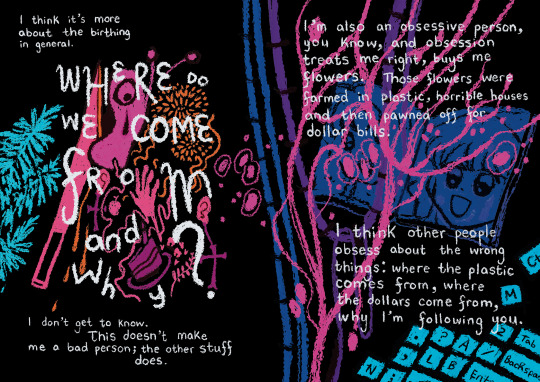 I think it's more
about the birthing
in general.
WHERE DO
WE COME
frOM
and
Why?
I don't get to know.
This doesn't make
me a bad person; the other stuff
does.
I'm also an obsessive person,
you know, and obsession
treats me right, buys me
flowers. Those flowers were
farmed in plastic, horrible houses
and then pawned off for
dollar bills.
I think other people
obsess about the wrong
things: where the plastic
comes from, where
the dollars come from,
why I'm following you.
M
? A / Tab
D L B Backspa
N